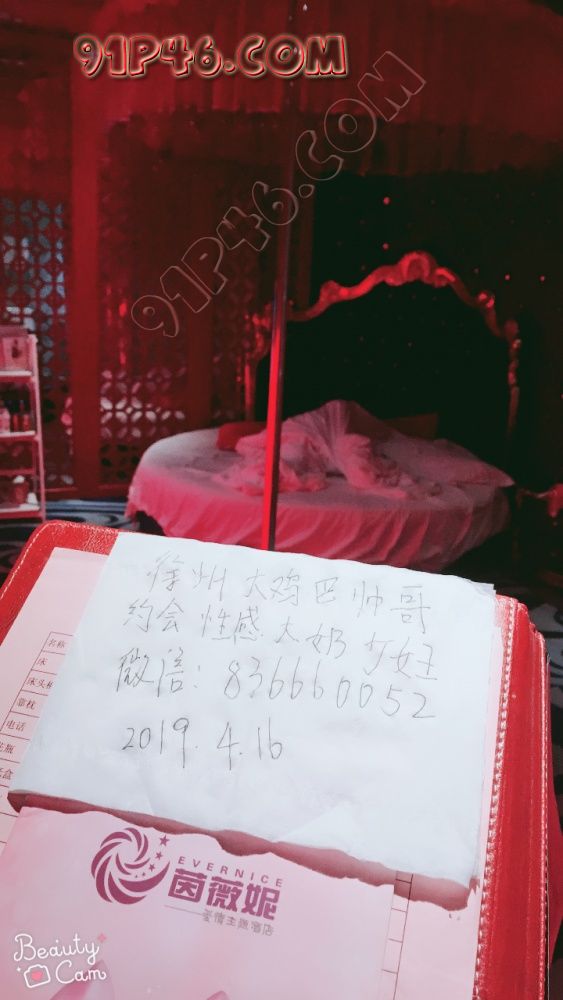 91P46.COM
91P46.COM
徐州大鸡巴帅哥
约会性感大奶少妇
微信：836660052
2019.4.16
名称
床
床头柜
靠枕
电话
花瓶
EVERNICE
茵薇妮
爱情主题酒店
Beauty
Cam